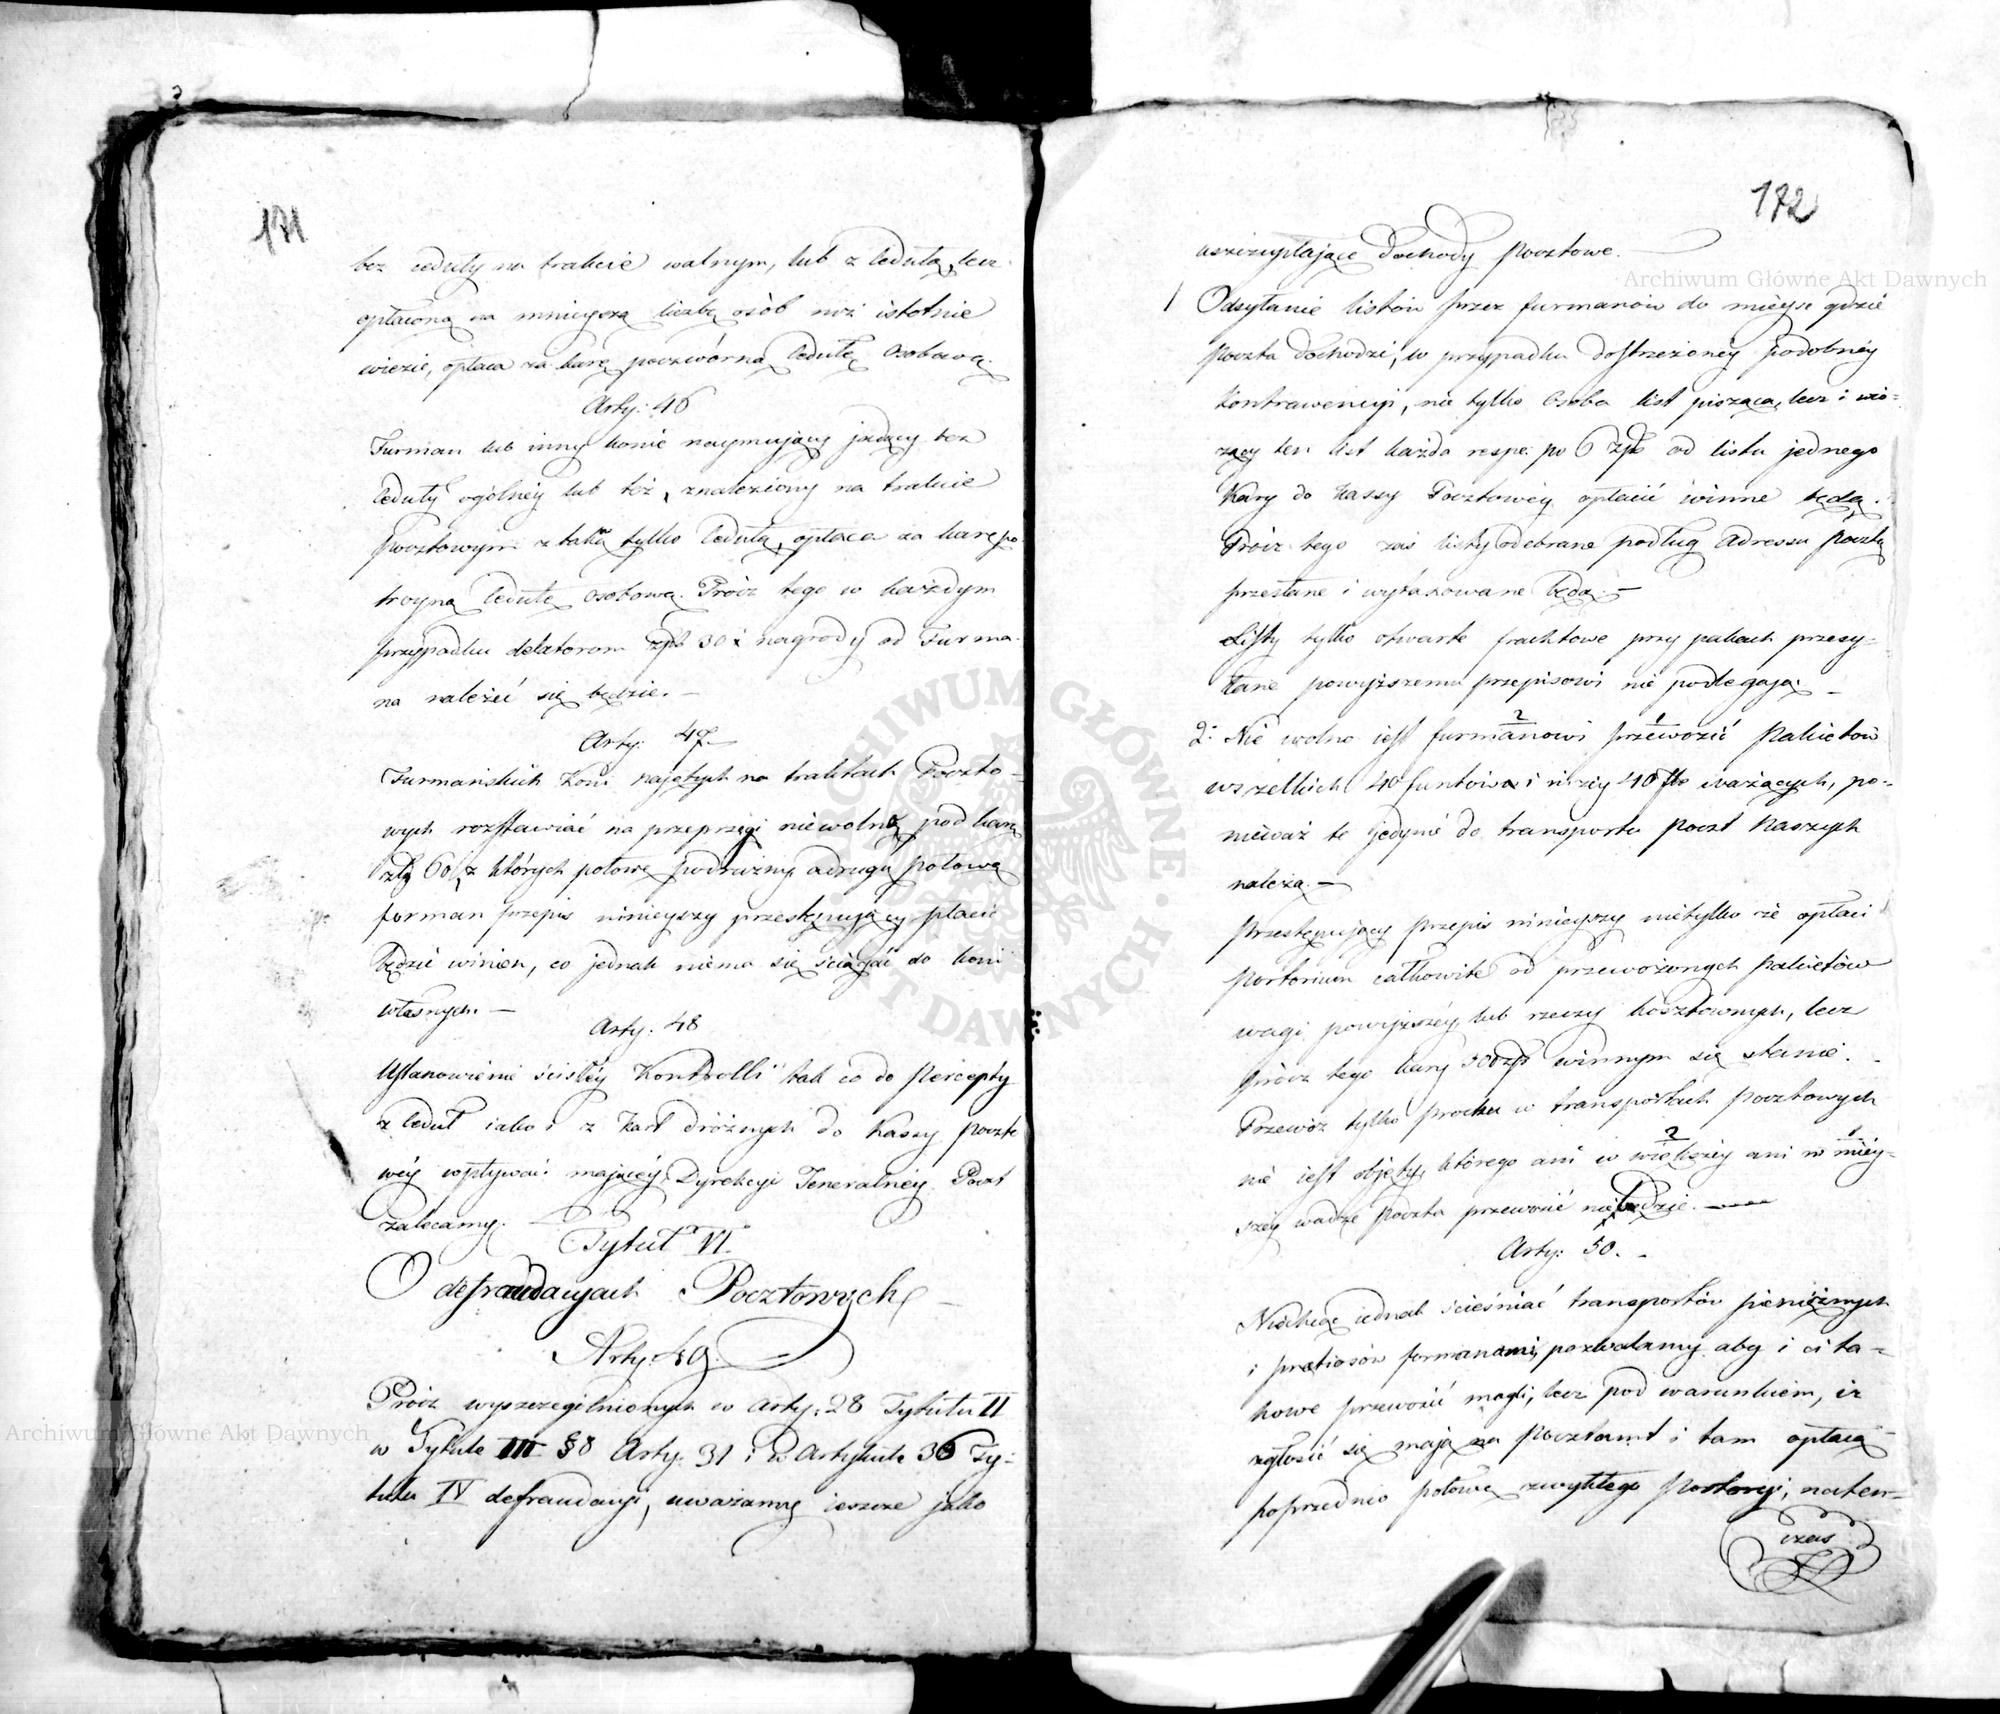 171
bez ceduły na trakcie walnym, lub z cedułą, lecz
opłaconą na mnieyszą liczbę osób niż istotnie
wiezie, opłaca za karę poczwórną cedułę osobową.
Arty: 46
Furman lub inny konie naymuiący jadący bez
ceduły ogólnéy lub też, znaleziony na trakcie
pocztowym z taką tylko cedułą, opłaca za karę po-
troyną cedułę osobową. Prócz tego w każdym
przypadku delatorom zpł 30 nagrody od Furma-
na należeć się będzie. –
Arty: 47. –
Furmańskich koni najętych na traktach Poczto-
wych rozstawiać na przeprzęgi niewolno, pod karą
złp 60, z których połowę podróżny a drugą połowę
forman przepis ninieyszy przestępujący płacić
będzie winien, co jednak niema się ściągać do koni
własnych. –
Arty: 48
Ustanowienie ścisłéy Kontrolli tak co do percepty
z ceduł iako i z kart dróżnych do Kassy poczto
wéy wpływać maiącéy Dyrekcyi Jeneralnéy Poczt
zalecamy. –
Tytuł VI.
O defraudacyach Pocztowych. –
Arty: 49.
Prócz wyszczególnionych w arty: 28 Tytułu II
w Tytule III § 8 Arty: 31 i w Artykule 36 Ty-
tułu IV defraudacyi, uważamy ieszcze jako
172
uszczuplające dochody pocztowe. –
1 Odsyłanie listów przez furmanów do mieysc gdzie
poczta dochodzi, w przypadku dostrzeżonéy podobnéy
kontrawencyi, nie tylko osoba list pisząca, lecz i wio-
zący ten list każda respe: po 6 złp od listu jednego
kary do kassy Pocztowéy opłacić winne będą.
Prócz tego zaś listy odebrane podług adressu pocztą
przesłane i wytaxowane będą. –
Listy tylko otwarte frachtowe przy pakach przesy-
łane powyższemu przepisowi nie podlegają. –
2: Nie wolno iest furmanowi przewozić Pakietów
wszelkich 40 funtów i niżéy 40 ważących, po-
nieważ te jedynie do transportu poczt naszych
należą. –
Przestępujący przepis ninieyszy nietylko że opłaci
portorium całkowite od przewożonych pakietów
wagi powyższéy lub rzeczy kosztownych, lecz
prócz tego kary złp winnym się stanie. –
Przewóz tylko prochu w transportach pocztowych
nie iest objęty, którego ani w większéy ani w mniey-
széy wadze poczta przewozić nie będzie. –
Arty: 50. –
Niechcąc iednak ścieśniać transportów pieniężnych
i pretiosów formanami, pozwalamy aby i ci ta-
kowe przewozić mogli, lecz pod warunkiem, iż
zgłosić się mają na Pocztamt i tam opłacą
poprzednio połowę zwykłego portoryi, naten-
czas
Archiwum Główne Akt Dawnych
Archiwum Główne Akt Dawnych
ARCHIWUM GŁÓWNE AKT DAWNYCH